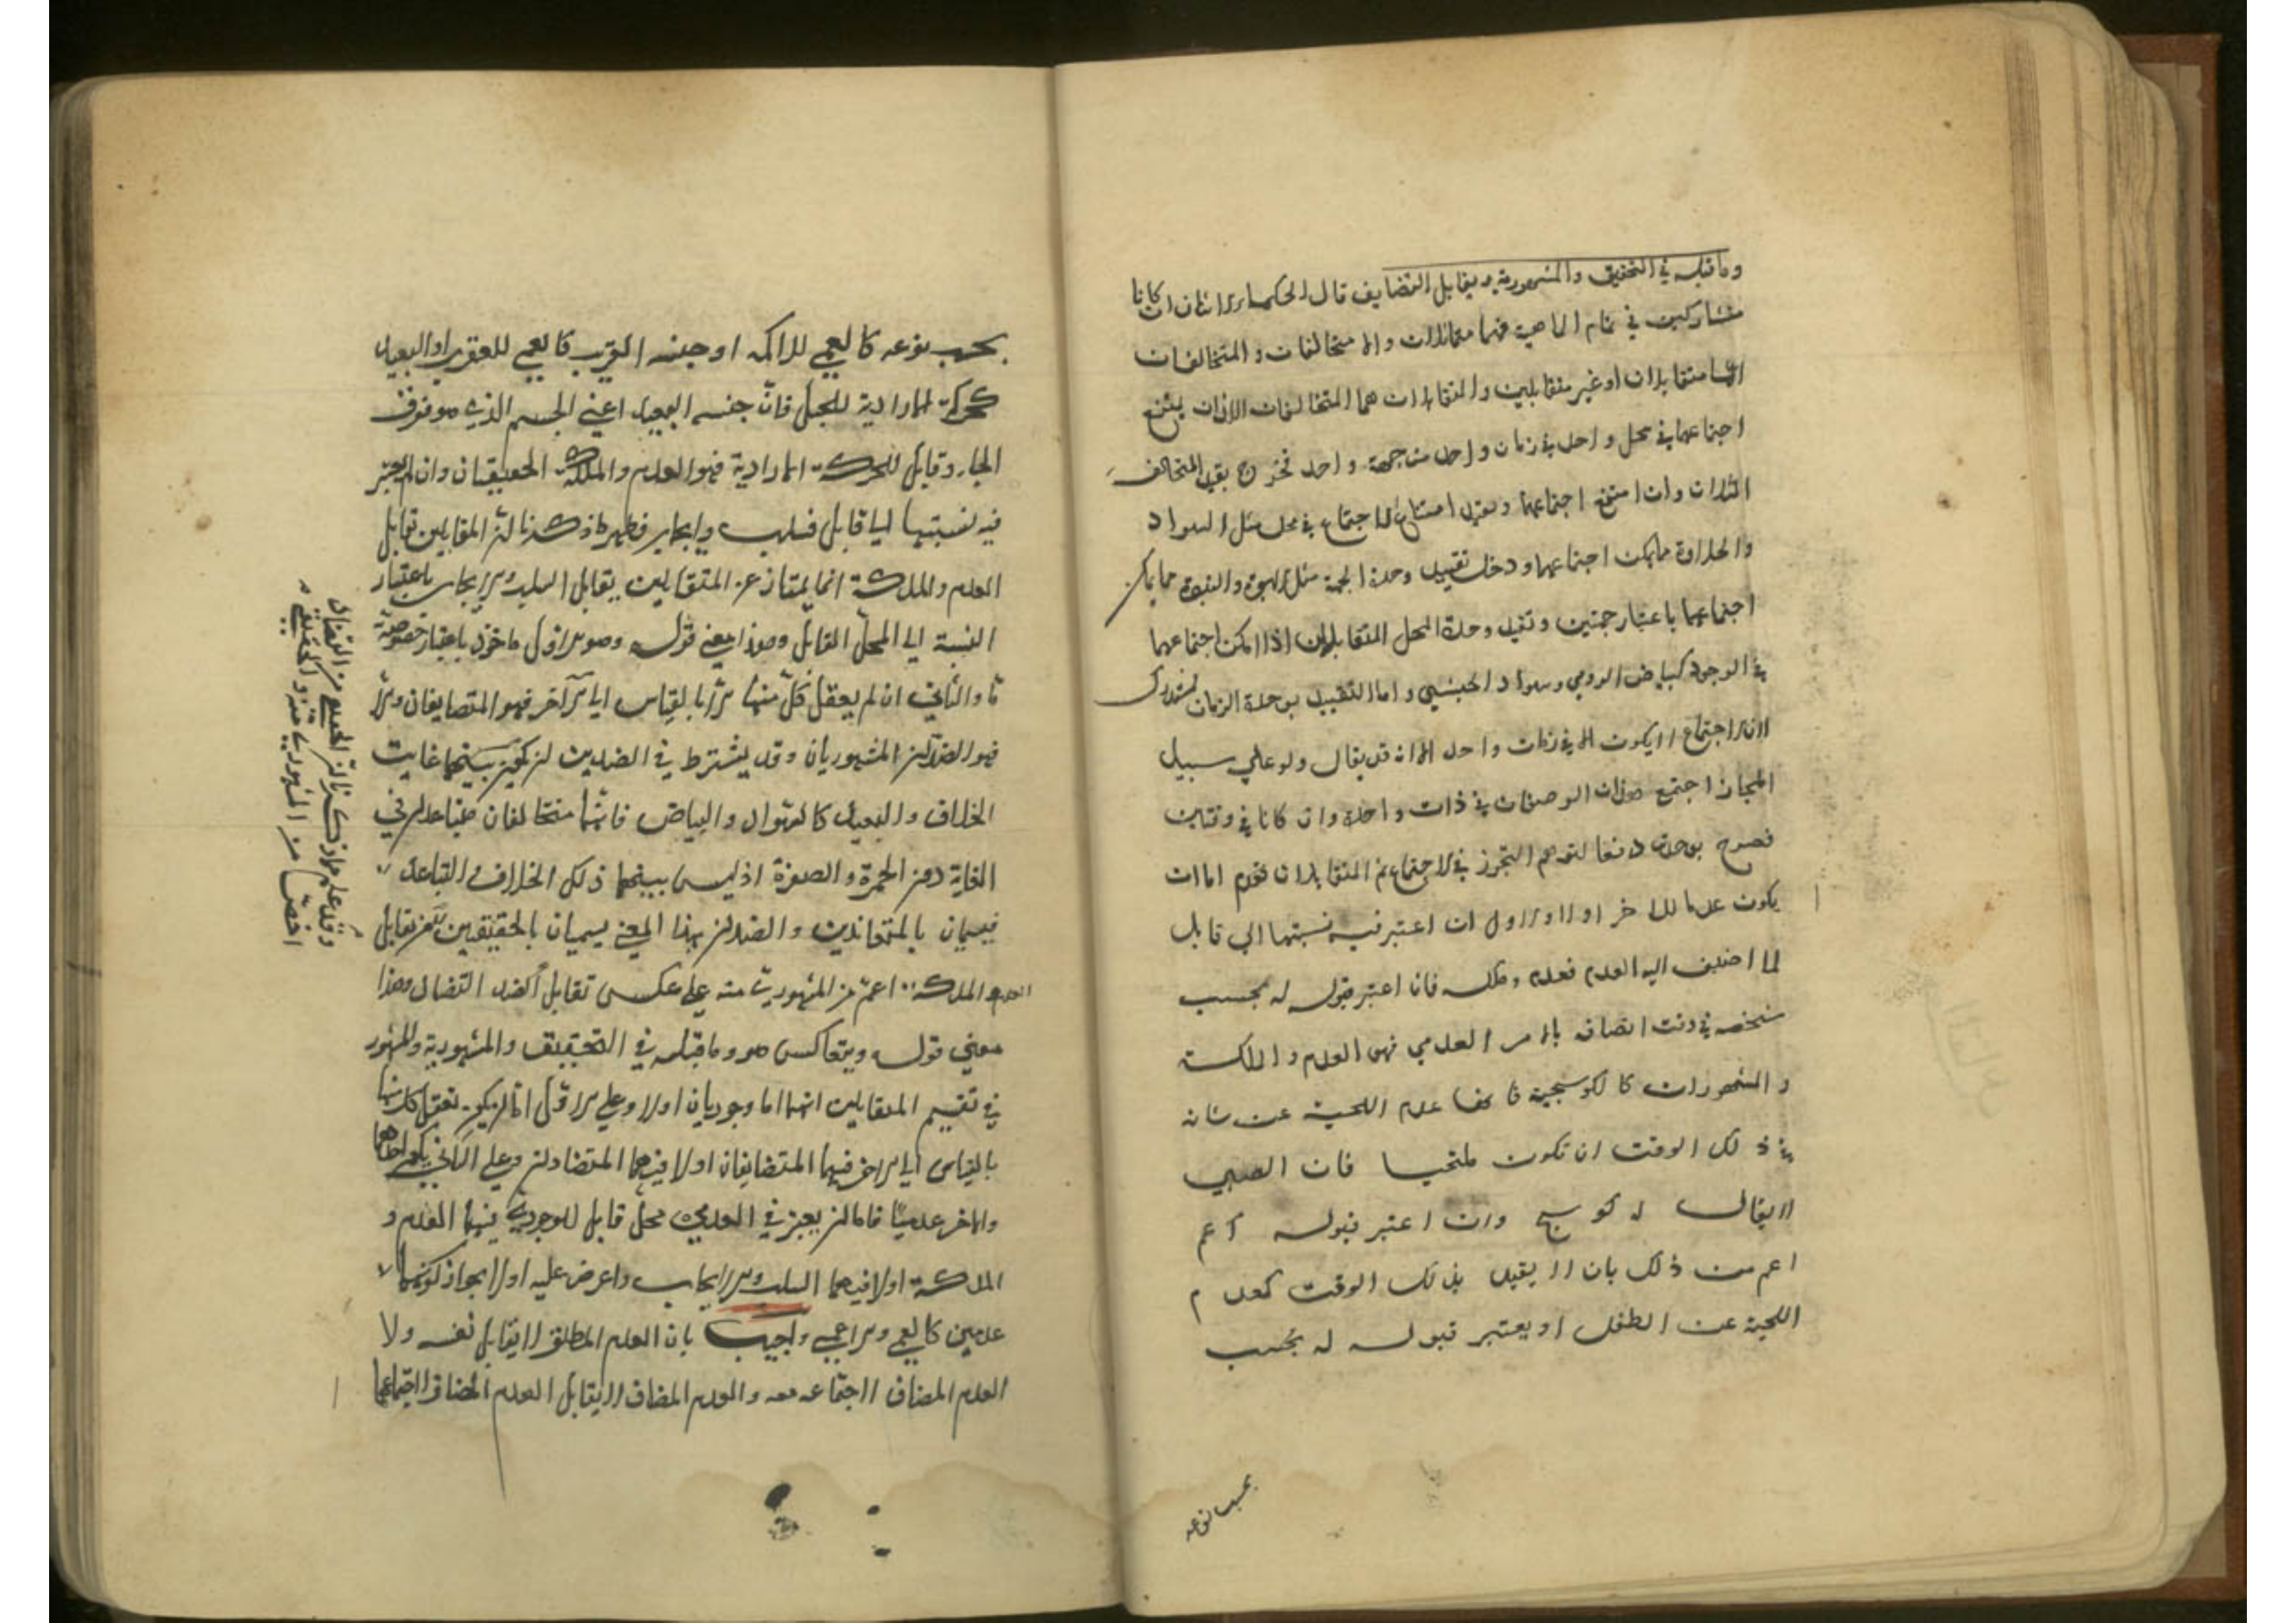 وما قبله في التحقيق والمشهورية ويقابل التضايف قال الحكماء الاثنان ان كانا
متشاركين في تمام الماهية فهما متماثلان والا متخالفان والمتخالفان
اما متقابلان او غير متقابلين والمتقابلان هما المتخالفان اللذان يمتنع
اجتماعهما في محل واحد في زمان واحد من جهة واحد فخرج بقيد التخالف
المثلان وان امتنع اجتماعهما وبقيد امتناع الاجتماع في محل مثل السواد
والحلاوة مما يمكن اجتماعهما ودخل بتقييد وحدة الجهة مثل الابوة والبنوة مما يمكن
اجتماعهما باعتبار جهتين وبقيد وحدة المحل المتقابلان اذا امكن اجتماعهما
في الوجود كبياض الرومي وسواد الحبشي واما التقييد بوحدة الزمان فمستدرك
لان الاجتماع لا يكون الا في زمان واحد الا انه قد يقال ولو على سبيل
المجاز اجتمع هذان الوصفان في ذات واحدة وان كانا في وقتين
فصرح بوحدة دفعا لتوهم التجوز في الاجتماع ثم المتقابلان اما ان
يكون عدما للاخر او لا والاول ان اعتبر فيه نسبتهما الى قابل
لما اضيف اليه العدم فعدم وملكه فان اعتبر قبوله له بحسب
شخصه في وقت اتصافه بالامر العدمي فهو العدم والملكة
والمشهوران كالكوسجية فانها عدم اللحية عن شانه
في ذلك الوقت ان تكون ملتحيا فان الصبي
لا يقال له كوسج وان اعتبر قبوله اعم
اعم من ذلك بان لا يقيد بذلك الوقت كعدم
اللحية عن الطفل او يعتبر قبوله له بحسب
بحسب نوعه
بحسب نوعه كالعمى للاكمه او جنسه القريب كالعمى للعقرب او البعيد
كحركة الارادية للجبل فان جنسه البعيد اعني الجسم الذي هو فوق
الجماد قابل للحركة الارادية فهو العدم والملكة الحقيقيان وان لم يعتبر
فيه نسبتهما الى قابل فسلب وايجاب فظهر مما ذكرنا ان المقابلين تقابل
العدم والملكة انما يمتاز عن المتقابلين بتقابل السلب والايجاب باعتبار
النسبة الى المحل القابل وهذا معنى قوله وهو الاول ماخوذ باعتبار خصوصية
ما والثاني ان لم يعقل كل منهما الا بالقياس الى الآخر فهو المتضايفان والا
فهو الضدان المشهوريان وقد يشترط في الضدين ان يكون بينهما غاية
الخلاف والبعد كالسواد والبياض فانهما متخالفان متباعدان في
الغاية دون الحمرة والصفرة اذ ليس بينهما ذلك الخلاف والتباعد
فيسميان بالمتعاندين والضدان بهذا المعنى يسميان بالحقيقيين تقابل
العدم والملكة اعم من المشهوريت منه على عكس تقابل الضد التضاد وهذا
معنى قوله ويتعاكس هو وما قبله في التحقيق والمشهورية والمشهور
في تقسيم المتقابلين انهما اما وجوديان او لا وعلى الاول اما ان يكون تعقل كل منهما
بالقياس الى الاخر فهما المتضايفان او لا فهما المتضادان وعلى الثاني يكون احدهما
والاخر عدميا فاما ان يعتبر في العدمي محل قابل للوجودي فهما العدم و
الملكة او لا فهما السلب والايجاب واعرض عليه اولا بجواز كونهما
عدمين كالعمى واللاعمى واجيب بان العدم المطلق لا يقابل نفسه ولا
العدم المضاف لاجتماعه معه والعدم المضاف لا يقابل العدم المضاف لاجتماعهما